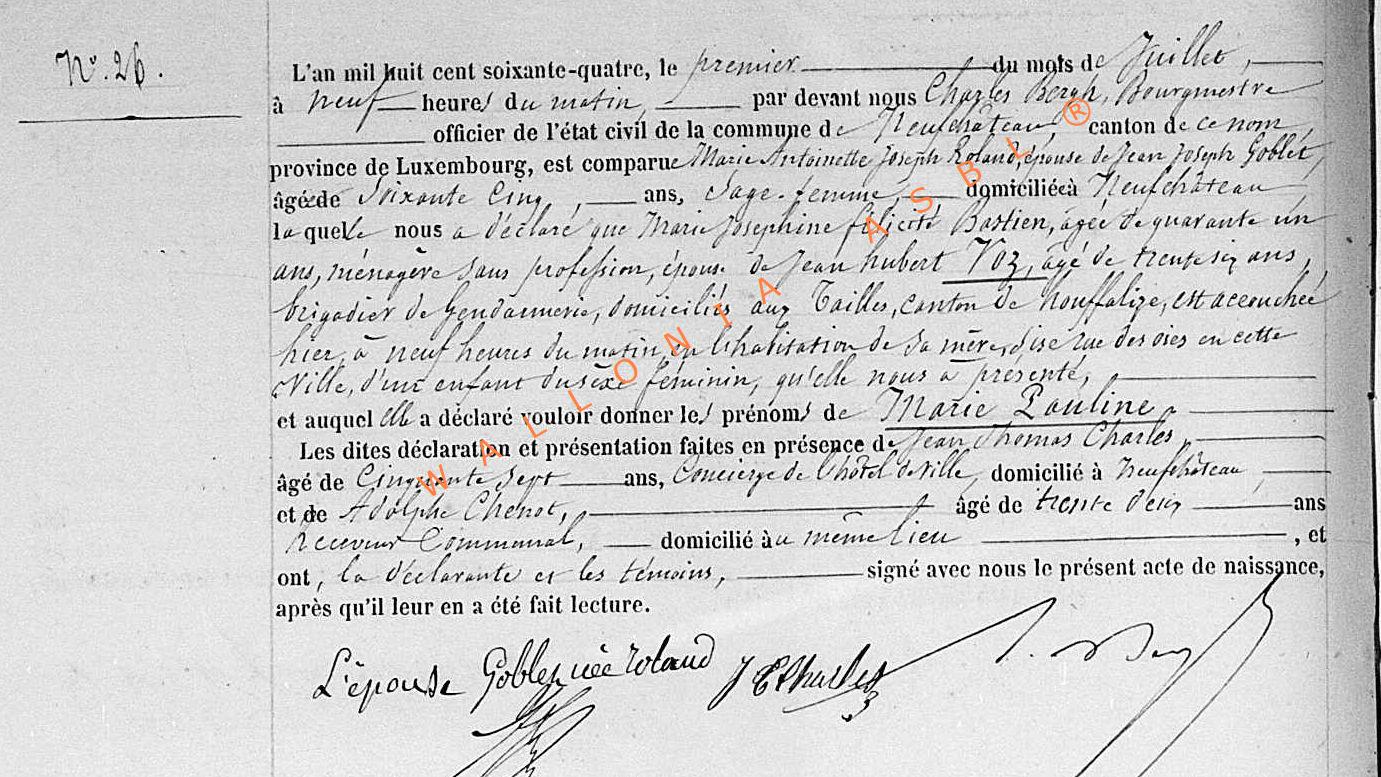 N° 26.
L'an mil huit cent soixante-quatre, le premier du mois de Juillet,
à neuf heures du matin, par devant nous Charles Bergh, Bourgmestre
officier de l'état civil de la commune de Neufchâteau, canton de ce nom
province de Luxembourg, est comparue Marie Antoinette Joseph Roland, épouse de Jean Joseph Goblet,
âgée de Soixante Cinq ans, Sage-femme, domiciliée à Neufchâteau
laquelle nous a déclaré que Marie Josephine félicité Bastien, âgée de quarante un
ans, ménagère sans profession, épouse de Jean hubert Voz, âgé de trente six ans,
brigadier de Gendarmerie, domiciliés aux Tailles, canton de houffalize, est accouchée
hier, à neuf heures du matin, en l'habitation de sa mère, sise rue des oies en cette
Ville, d'un enfant du sexe féminin, qu'elle nous a présenté,
et auquel elle a déclaré vouloir donner les prénoms de Marie Pauline,
Les dites déclaration et présentation faites en présence de Jean Thomas Charles,
âgé de Cinquante Sept ans, Concierge de l'hôtel de Ville, domicilié à Neufchâteau,
et de Adolphe Chenot, âgé de trente deux ans
Receveur Communal, domicilié au même lieu, et
ont, la déclarante et les témoins, signé avec nous le présent acte de naissance,
après qu'il leur en a été fait lecture.
L'épouse Goblet née roland J T Charles
WALLONIA ASBL ®